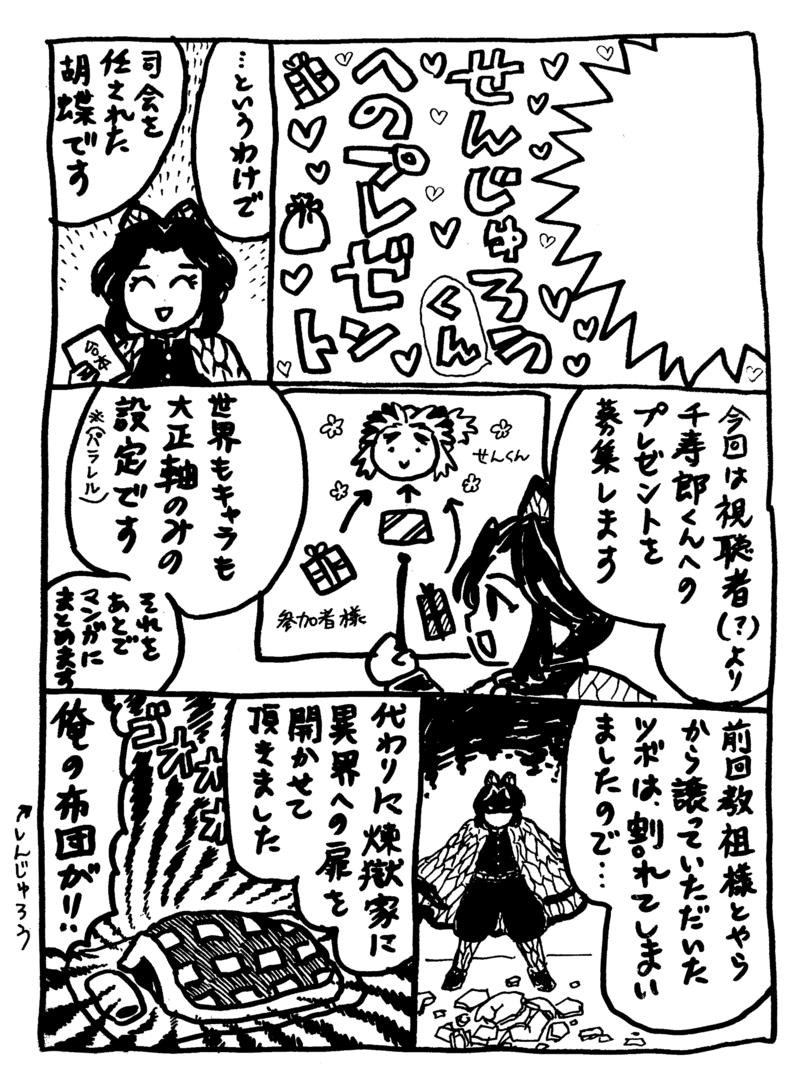 せんじゅろう
くん
へのプレゼント
…というわけで
司会を
任された
胡蝶です
台本
今回は視聴者(?)より
千寿郎くんへの
プレゼントを
募集します
せんくん
参加者様
世界もキャラも
大正軸のみの
設定です
※(パラレル)
それを
あとで
マンガに
まとめます
前回教祖様とやら
から譲っていただいた
ツボは、割れてしまい
ましたので…
代わりに煉獄家に
異界への扉を
開かせて
頂きました
ゴオオオオ
俺の布団が!!
↑しんじゅろう